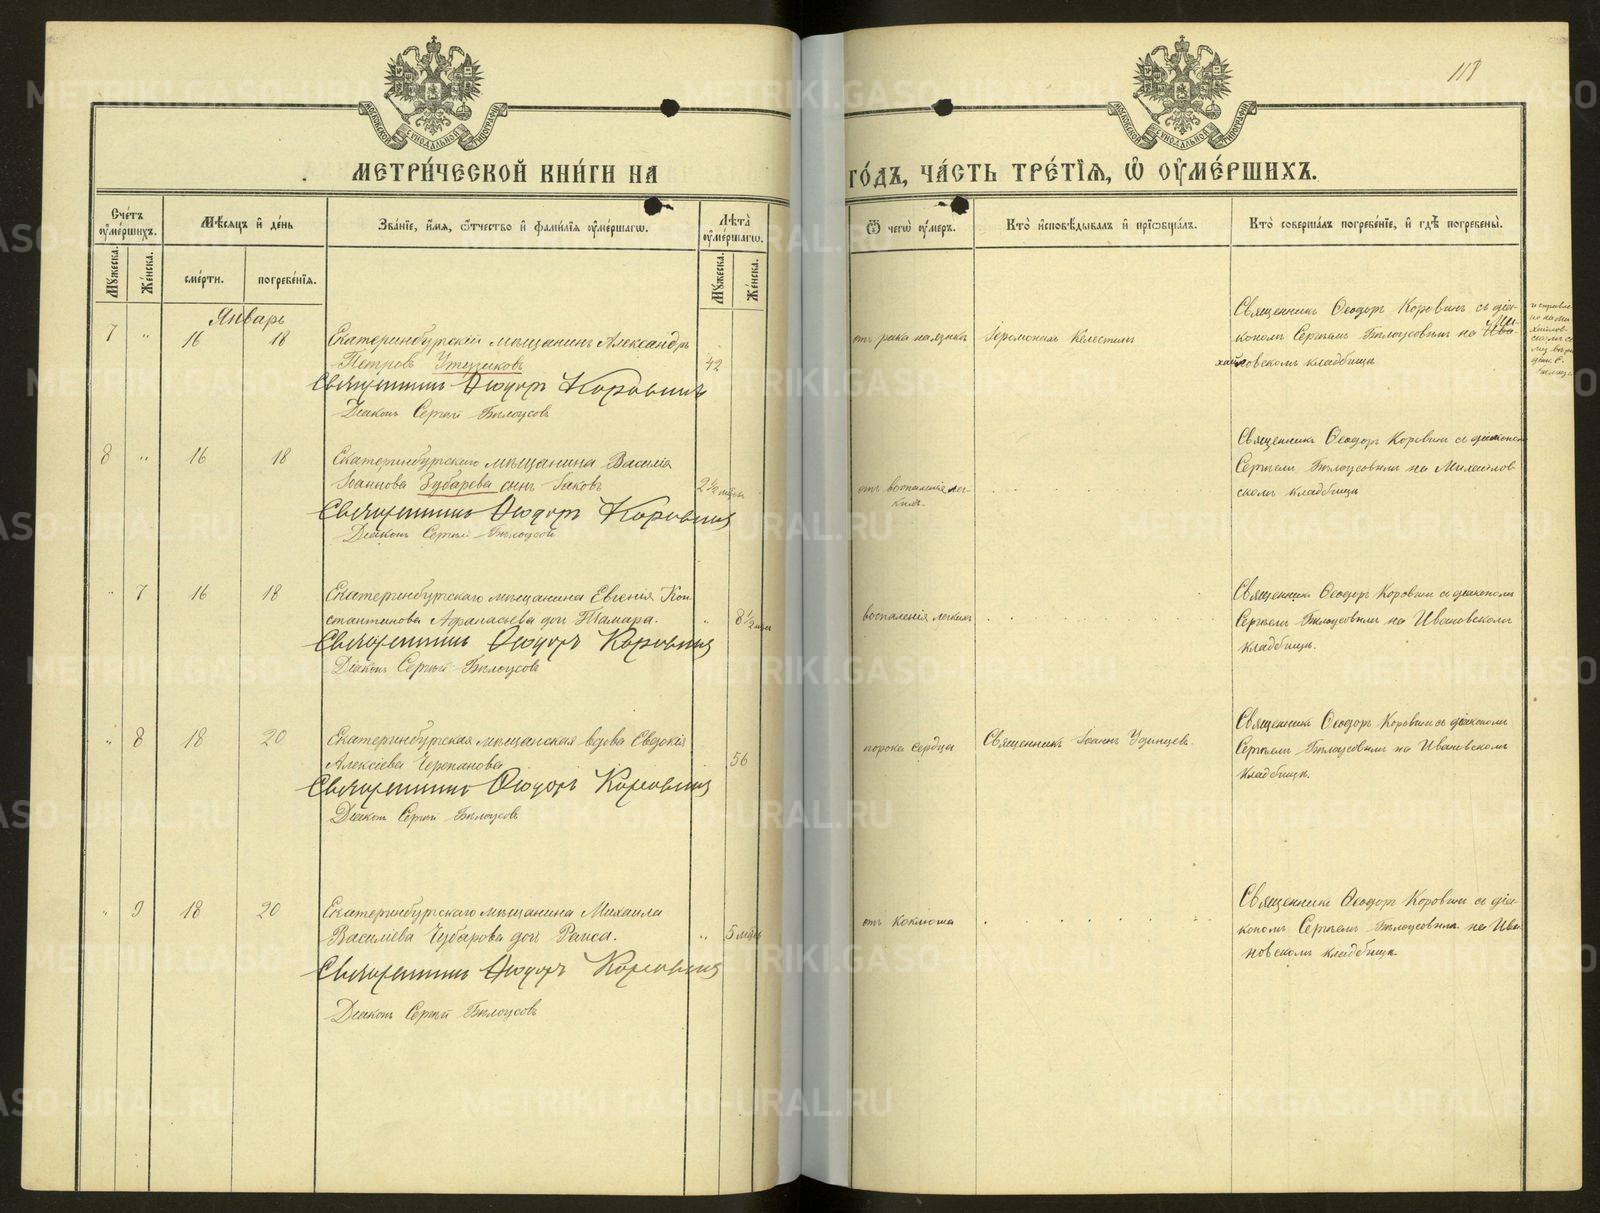 118
МОСКОВСКОЙ СѴНОДАЛЬНОЙ ТИПОГРАФІИ
МОСКОВСКОЙ СѴНОДАЛЬНОЙ ТИПОГРАФІИ
МЕТРИ́ЧЕСКОЙ КНИ́ГИ НА
ГО́ДЪ, ЧА́СТЬ ТРЕ́ТІѦ, Ѡ҆ ОУ҆МЕ́РШИХЪ.
Сче́тъ оу҆ме́ршихъ.
Мꙋ́жеска.
Же́нска.
Мѣ́сѧцъ и҆ де́нь
сме́рти.
погребе́нїѧ.
Зва́нїе, и҆́мѧ, ѻ҆́тчество и҆ фами́лїѧ оу҆ме́ршагѡ.
Лѣ́та оу҆ме́ршагѡ.
Мꙋ́жеска.
Же́нска.
Ѿ чегѡ̀ оу҆́меръ.
Кто̀ и҆сповѣ́дывалъ и҆ прїѡбща́лъ.
Кто̀ соверша́лъ погребе́нїе, и҆ гдѣ̀ погребены̀.
Январь
7 " 16 18
Екатеринбургскій мѣщанинъ Александръ
Петровъ
42
Священникъ Ѳеодоръ Коровинъ
Діаконъ Сергѣй Бѣлоусовъ
отъ рака на языкѣ
Іеромонахъ Келестин
Священникъ Ѳеодоръ Коровинъ съ діа-
кономъ Сергѣемъ Бѣлоусовымъ на Ива- Ми-
хайловскомъ кладбищѣ
8 " 16 18
Екатеринбургскаго мѣщанина Василія
Іоаннова Зубарева сынъ Іаковъ
2½ мѣсяц
Священникъ Ѳеодоръ Коровинъ
Діаконъ Сергѣй Бѣлоусовъ
отъ воспаленія лег-
кихъ.
Священникъ Ѳеодоръ Коровинъ съ діаконом
Сергѣемъ Бѣлоусовымъ на Михайлов-
скомъ кладбищѣ
" 7 16 18
Екатеринбургскаго мѣщанина Евгенія Кон
стантинова Аѳанасьева дочь Тамара.
" 8½ мѣся
Священникъ Ѳеодоръ Коровинъ
Діаконъ Сергѣй Бѣлоусовъ
воспаленія легкихъ
Священникъ Ѳеодоръ Коровинъ съ діакономъ
Сергѣемъ Бѣлоусовымъ на Ивановскомъ
кладбищѣ.
" 8 18 20
Екатеринбургская мѣщанская вдова Евдокія
Алексіева Черепанова
56
Священникъ Ѳеодоръ Коровинъ
Діаконъ Сергѣй Бѣлоусовъ
порока сердца
Священникъ Іоаннъ Удинцевъ
Священникъ Ѳеодоръ Коровинъ съ діакономъ
Сергѣемъ Бѣлоусовымъ на Ивановскомъ
кладбищѣ.
" 9 18 20
Екатеринбургскаго мѣщанина Михаила
Василіева Чубарова дочь Раиса.
" 5 мѣсяц
Священникъ Ѳеодоръ Коровинъ
Діаконъ Сергѣй Бѣлоусовъ
отъ коклюша
Священникъ Ѳеодоръ Коровинъ съ діа-
кономъ Сергѣемъ Бѣлоусовымъ на Ива-
новскомъ кладбищѣ
METRIKI.GASO-URAL.RU